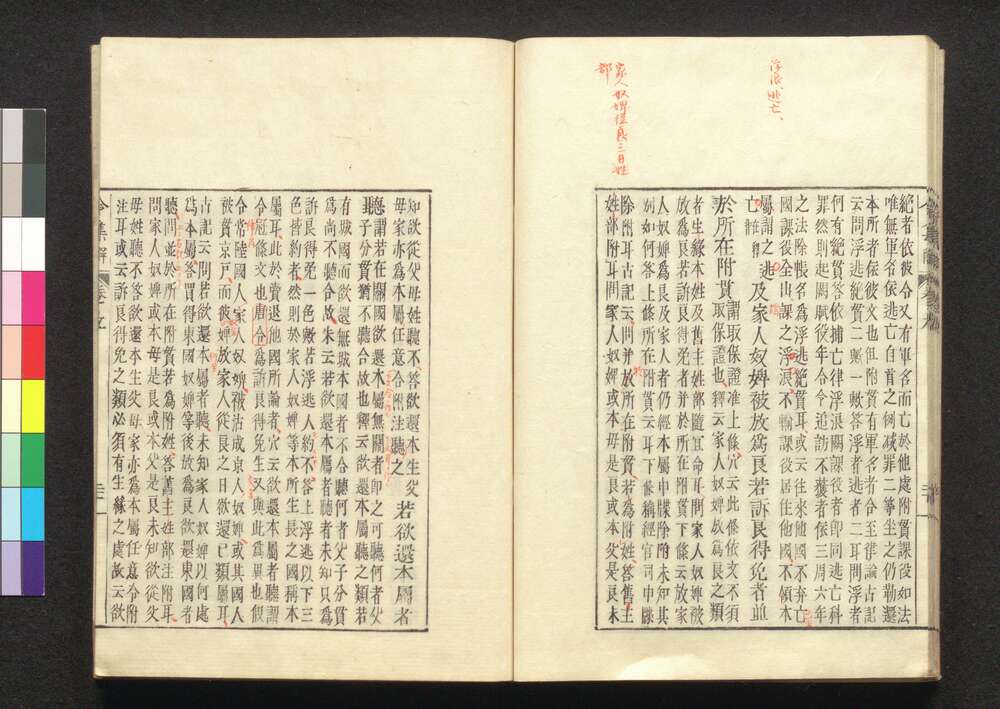 浮浪逃亡、
家人奴婢從良三日姓
部
絶者依彼令又有軍名而亡於他處附貫課役如法
唯無軍名依逃亡自首之例减罪二等坐之仍勒還
本所者依彼文也但附貫有軍名者合至徒論古記
云問浮逃絶貫二興一歟答浮者逃者二耳問浮者
何有絶貫答依捕亡律浮浪闕課役者即同逃亡科
罪然則起闕賦役年令今追訪不獲者依三周六年
之法除帳名爲浮逃絶貫耳或云往來他國不弃亡
國課役全出課之浮浪不輸課役居住他國不領本
屬謂之逃亡
及家人奴婢被放爲良若訴良得免者並
於所在附貫
謂取保證准上條穴云此條依文不須
取保證也釋云家人奴婢放爲良之類
者生緣本姓及舊主姓部隨宜命耳問家人奴婢被
人放爲良若訴良得免者並於所在附貫下條云放家
人奴婢爲良及家人者仍經本屬申牒除附未知其
別如何答上條所在附貫云耳下條稱經官司申牒
除附耳古記云問並於所在附貫若爲附姓答舊主
姓部附耳問家人奴婢或本母是良或本父是良未
令集解 卷九
知欲從父母姓聽不答欲還本生父
母家亦爲本屬任意合附注聽之
若欲還本屬者
聽
謂若在關國欲還本屬無關者即之可聽何者父
子分貫猶不聽合故也釋云欲還本屬之類若
有賊國而欲還無賊本國者不合聽何者父子分貫
爲尚不聽合故朱云若欲還本屬者聽者未知只爲
訴良得免一色歟若浮逃人約不答上浮逃以下三
色皆約者然則於家人奴婢等本所生長之國稱本
屬耳此於賣退他國所論者穴云欲還本屬者聽謂
令冠條文也唐令爲訴良得免生又與此爲異也假
令常陸國人家人奴婢被沽成京人奴婢或其國人
被貫京戸而彼婢放家人從良之日欲還已類屬耳
古記云問若欲還本屬者聽未知家人奴婢以何處
爲本屬答買得東國奴婢等後放爲良欲還東國者
聽問並於所在附貫若爲附姓答舊主姓部注附耳
問家人奴婢或本母是良或本父是良未知欲從父
母姓聽不答欲還本生父母家亦爲本屬任意令附
注耳或云訴良得免之類必須有生緣之處故云欲
令集解 卷九